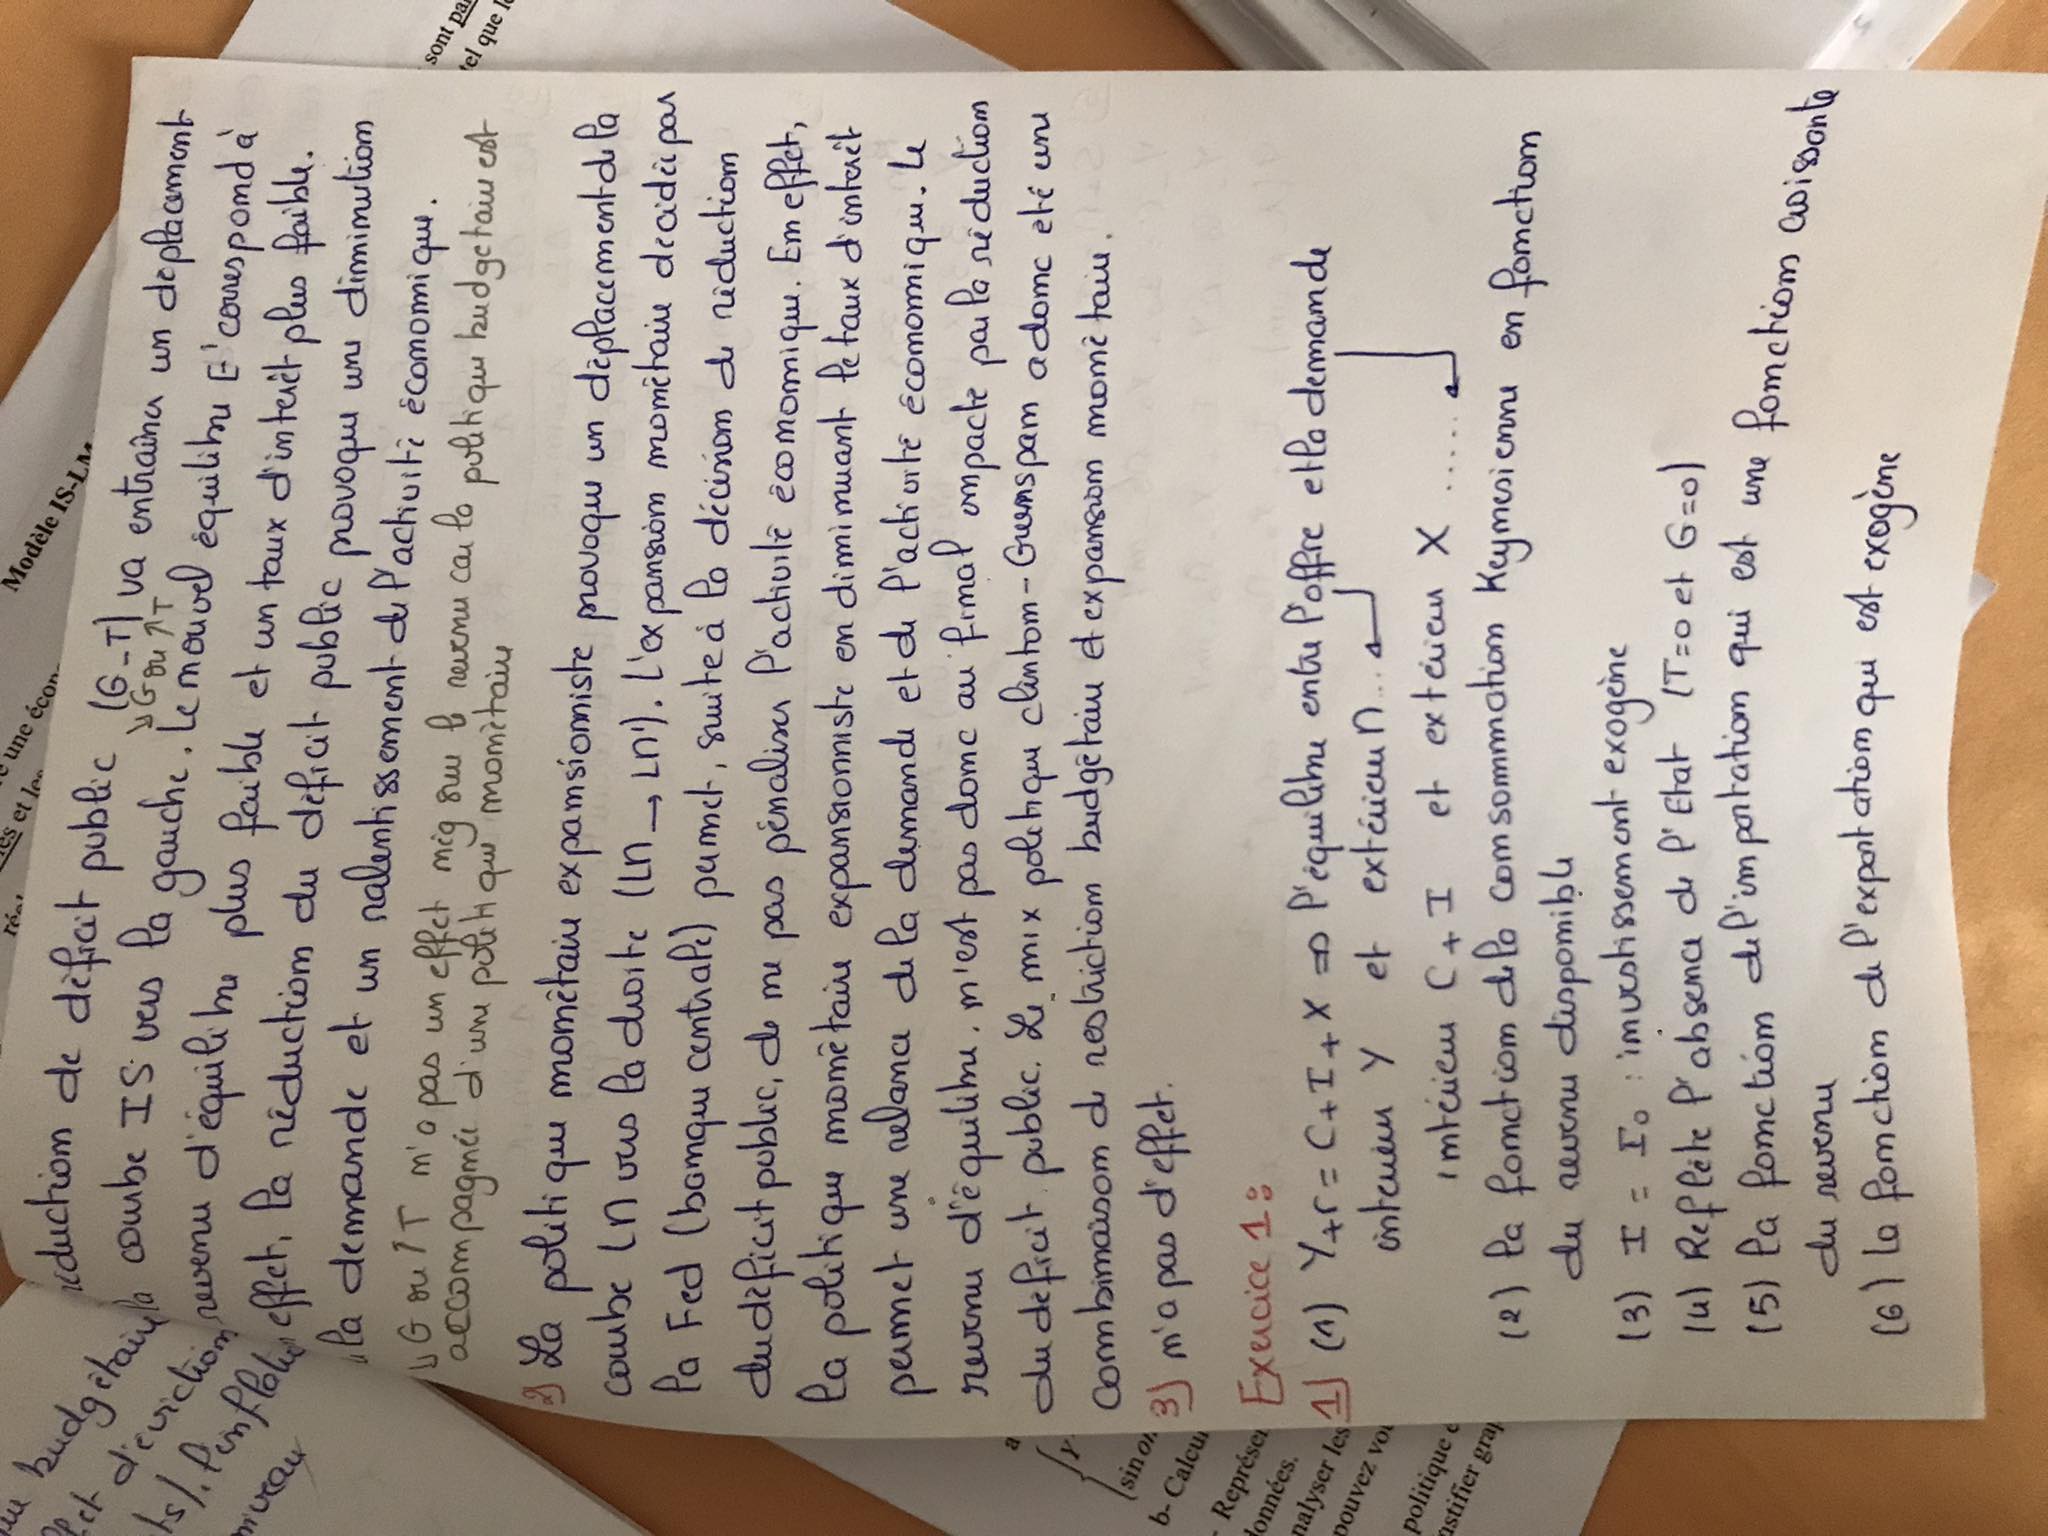 réduction de déficit public (G-T) va entraîner un déplacement
↘G ou ↗T
la courbe IS vers la gauche. Le nouvel équilibre E' correspond à
revenu d'équilibre plus faible et un taux d'interêt plus faible.
effet, la réduction du déficit public provoque une diminution
la demande et un ralentissement de l'activité économique.
↘G ou ↑T n'a pas un effet nég sur le revenu car la politique budgetaire est
accompagnée d'une politique monètaire
2) La politique monétaire expansionniste provoque un déplacement de la
courbe LM vers la droite (LM → LM'). L'expansion monétaire decidée par
la Fed (banque centrale) permet, suite à la décision de réduction
du déficit public, de ne pas pénaliser l'activité économique. En effet,
la politique monétaire expansionniste en diminuant le taux d'interêt
permet une relance de la demande et de l'activité économique. Le
revenu d'équilibre n'est pas donc au final impacte par la réduction
du deficit public. Le mix politique clinton-Greenspan a donc eté une
combinaison de restriction budgétaire et expansion monétaire.
3) n'a pas d'effet.
Exercice 1:
1) (1) Y+M = C+I+X ⇒ l'équilibre entre l'offre et la demande
intérieur Y et extérieur M...
intérieur C+I et extérieur X ......
(2) la fonction de la consommation Keynesienne en fonction
du revenu disponible
(3) I = I₀ : investissement exogène
(4) Reflète l'absence de l'Etat (T=0 et G=0)
(5) la fonction de l'importation qui est une fonction croissante
du revenu
(6) la fonction de l'exportation qui est exogène
budgétaire
et d'éviction
ts/. l'inflation
niveau
sont
tel que
Modèle IS-LM
une écon
et les
sinon
b- Calcu
- Représe
données.
nalyser les
pouvez vo
politique
stifier grap